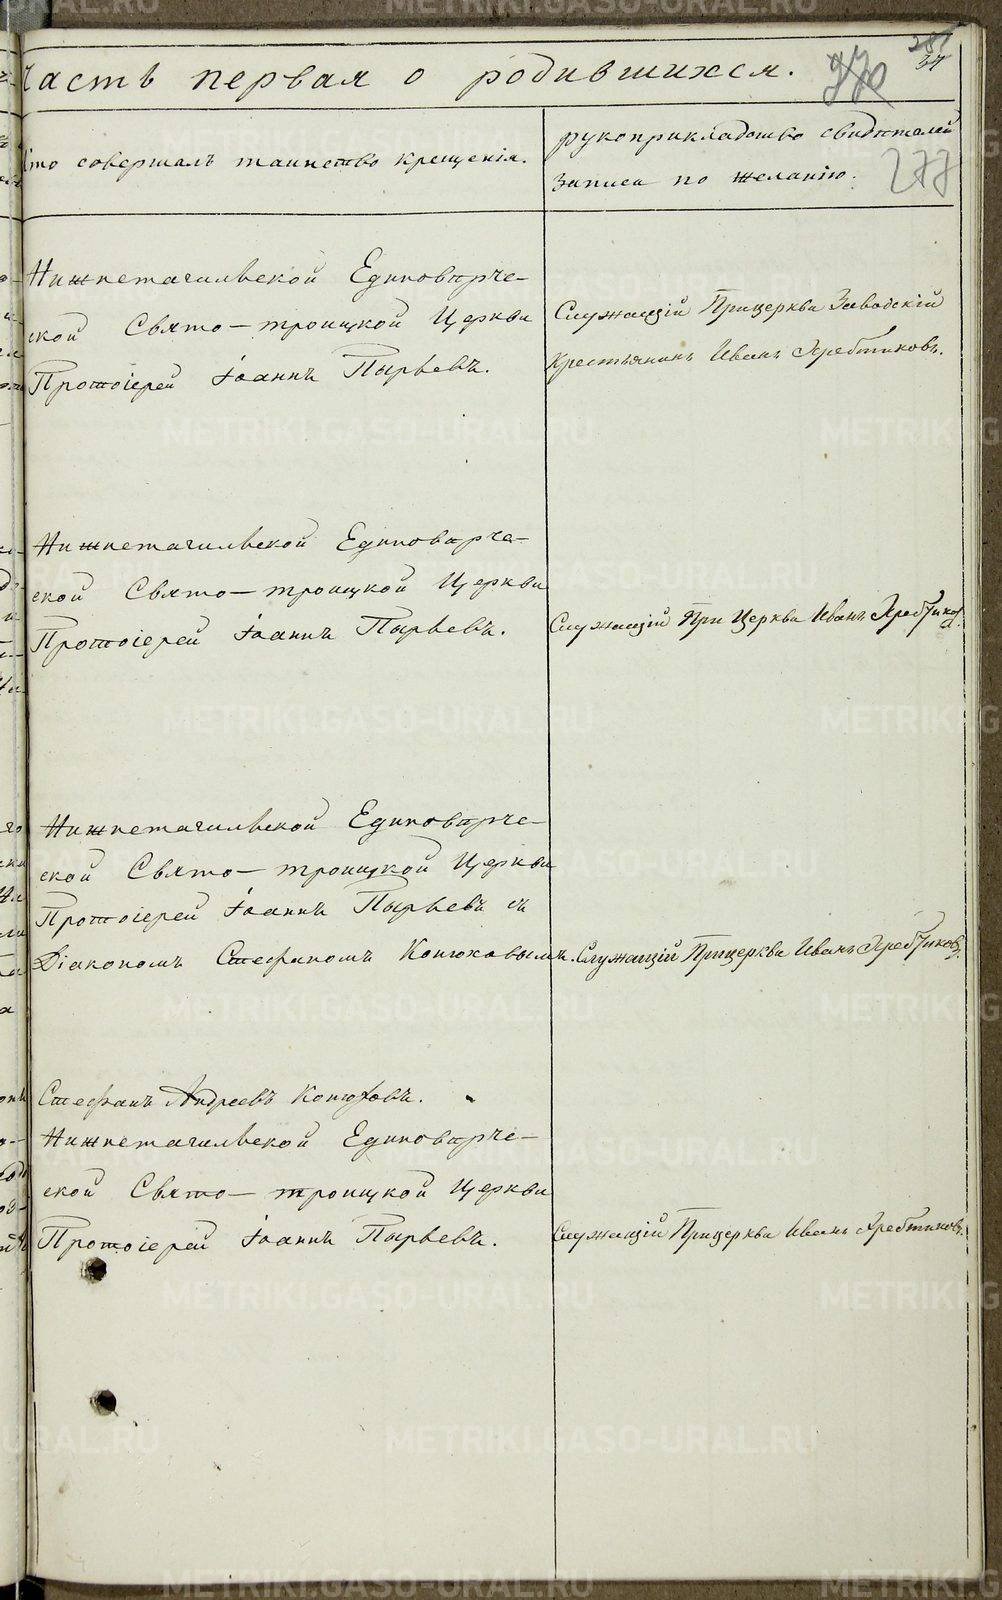 Часть первая о родившихся.
281
34
970
277
Кто совершалъ таинство крещенія.
рукоприкладство свидѣтелей
записи по желанію.
Нижнетагильской Единовѣрче-
ской Свято-троицкой Церкви
Протоіерей Іоаннъ Пырьевъ.
Служащій Прицеркви Заводскій
Крестьянинъ Иванъ Хребтиковъ.
Нижнетагильской Единовѣрче-
ской Свято-троицкой Церкви
Протоіерей Іоаннъ Пырьевъ.
Служащій При Церкви Иванъ Хребтиковъ.
Нижнетагильской Единовѣрче-
ской Свято-троицкой Церкви
Протоіерей Іоаннъ Пырьевъ съ
Діакономъ Стефаномъ Конюховымъ.
Служащій Прицеркви Иванъ Хребтиковъ.
Стефанъ Андреевъ Конюховъ.
Нижнетагильской Единовѣрче-
ской Свято-троицкой Церкви
Протоіерей Іоаннъ Пырьевъ.
Служащій Прицеркви Иванъ Хребтиковъ.
METRIKI.GASO-URAL.RU